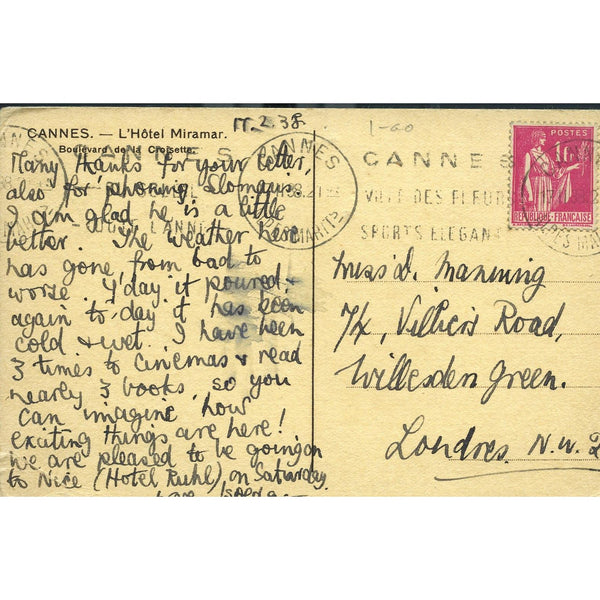 CANNES. — L'Hôtel Miramar.
Boulevard de la Croisette.
17.2.38
1-60
Many thanks for your letter,
also for 'phoning Slomans.
I am glad he is a little
better. The weather here
has gone from bad to
worse. Y'day it poured &
again to-day it has been
cold & wet. I have been
3 times to cinemas & read
nearly 3 books, so you
can imagine how
exciting things are here!
We are pleased to be going on
to Nice (Hotel Ruhl) on Saturday.
CANNES
CANNES
VILLE DES FLEURS
SPORTS ELEGAN
POSTES
REPUBLIQUE-FRANCAISE
Miss D. Manning
74, Villiers Road,
Willesden Green.
Londres. N.W.2